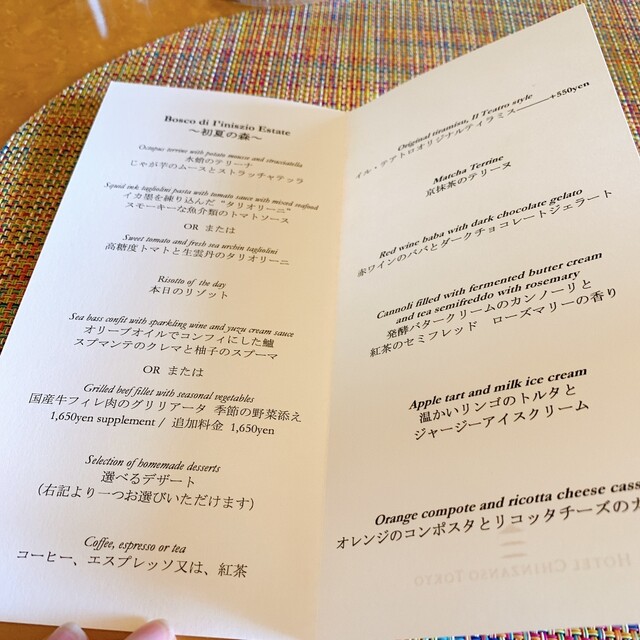 Bosco di l'iniszio Estate
～初夏の森～
Octopus terrine with potato mousse and stracciatella
水蛸のテリーナ
じゃが芋のムースとストラッチャテッラ
Squid ink tagliolini pasta with tomato sauce with mixed seafood
イカ墨を練り込んだ “タリオリーニ”
スモーキーな魚介類のトマトソース
OR または
Sweet tomato and fresh sea urchin tagliolini
高糖度トマトと生雲丹のタリオリーニ
Risotto of the day
本日のリゾット
Sea bass confit with sparkling wine and yuzu cream sauce
オリーブオイルでコンフィにした鱸
スプマンテのクレマと柚子のスプーマ
OR または
Grilled beef fillet with seasonal vegetables
国産牛フィレ肉のグリリアータ 季節の野菜添え
1,650yen supplement / 追加料金 1,650yen
Selection of homemade desserts
選べるデザート
（右記より一つお選びいただけます）
Coffee, espresso or tea
コーヒー、エスプレッソ又は、紅茶
Original tiramisu, Il Teatro style———+550yen
イル・テアトロオリジナルティラミス
Matcha Terrine
京抹茶のテリーヌ
Red wine baba with dark chocolate gelato
赤ワインのババとダークチョコレートジェラート
Cannoli filled with fermented butter cream
and tea semifreddo with rosemary
発酵バタークリームのカンノーリと
紅茶のセミフレッド ローズマリーの香り
Apple tart and milk ice cream
温かいリンゴのトルタと
ジャージーアイスクリーム
Orange compote and ricotta cheese cass
オレンジのコンポスタとリコッタチーズのカ
HOTEL CHINZANSO TOKYO